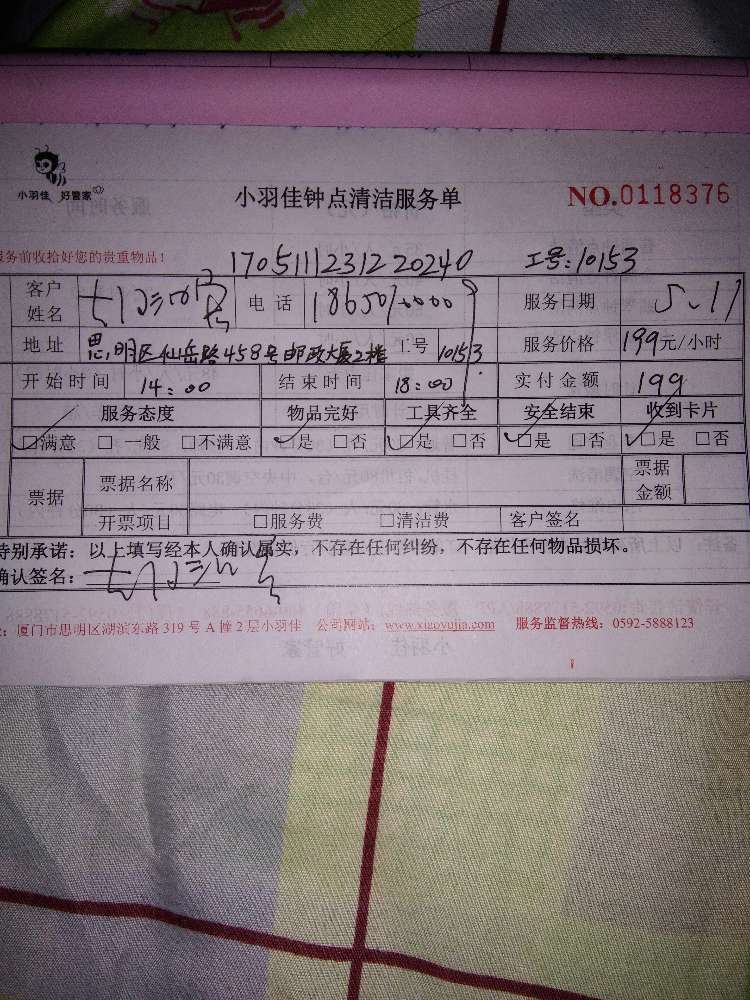 小羽佳 好管家
小羽佳钟点清洁服务单
NO.0118376
服务前收拾好您的贵重物品！
170511123122 0240 工号：10153
客户姓名 电话 服务日期 5.11
地址 思明区仙岳路458号邮政大厦2楼 工号 10153 服务价格 199元/小时
开始时间 14：00 结束时间 18：00 实付金额 199
服务态度 物品完好 工具齐全 安全结束 收到卡片
□满意 □一般 □不满意 □是 □否 □是 □否 □是 □否 □是 □否
票据 票据名称 票据金额
开票项目 □服务费 □清洁费 客户签名
特别承诺：以上填写经本人确认属实，不存在任何纠纷，不存在任何物品损坏。
确认签名：
厦门市思明区湖滨东路319号A幢2层小羽佳 公司网站：www.xiaoyujia.com 服务监督热线：0592-5888123